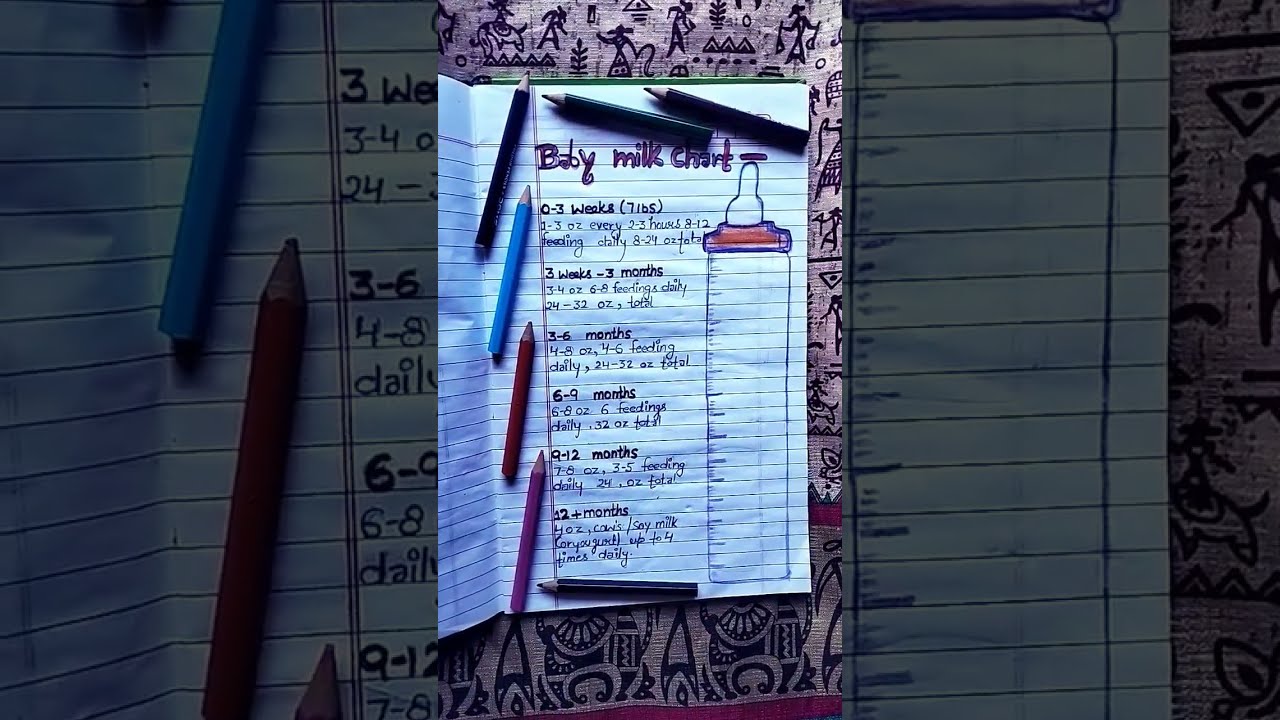 Baby milk chart
0-3 weeks (7lbs)
1-3 oz every 2-3 hours 8-12
feeding daily 8-24 oz total
3 weeks - 3 months
3-4 oz 6-8 feedings daily
24-32 oz, total
3-6 months
4-8 oz, 4-6 feeding
daily, 24-32 oz total
6-9 months
6-8 oz 6 feedings
daily, 32 oz total
9-12 months
7-8 oz, 3-5 feeding
daily 24, oz total
12+months
4 oz, cow's /Soy milk
(oryougurt) up to 4
times daily.
3 wee
3-4 o
24-3
3-6
4-8
daily
6-9
6-8
daily
9-12
7-8